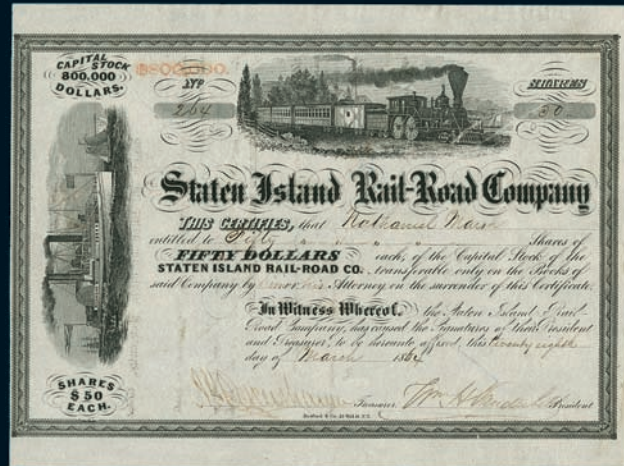 CAPITAL STOCK 800.000 DOLLARS.
No
264
SHARES
50
Staten Island Rail-Road Company
THIS CERTIFIES, that Nathaniel Marsh
entitled to Fifty Shares of
FIFTY DOLLARS each, of the Capital Stock of the
STATEN ISLAND RAIL-ROAD CO. transferable only on the Books of
said Company by Attorney on the surrender of this Certificate.
In Witness Whereof, the Staten Island Rail
Road Company, has caused the Signatures of their President
and Treasurer, to be hereunto affixed, this twenty eighth
day of March 1864
SHARES $50 EACH.
Treasurer.
Wm H President